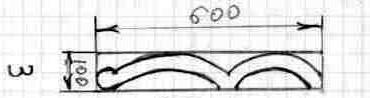 600
100
3